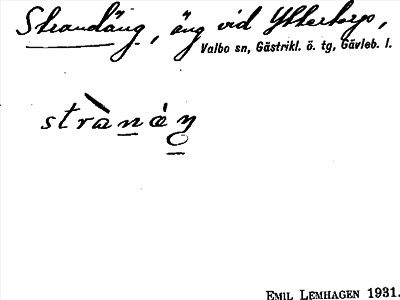 Strandäng, äng vid Ytterharjo,
Valbo sn, Gästrikl. ö. tg, Gävleb. l.
strànáŋ
EMIL LEMHAGEN 1931.